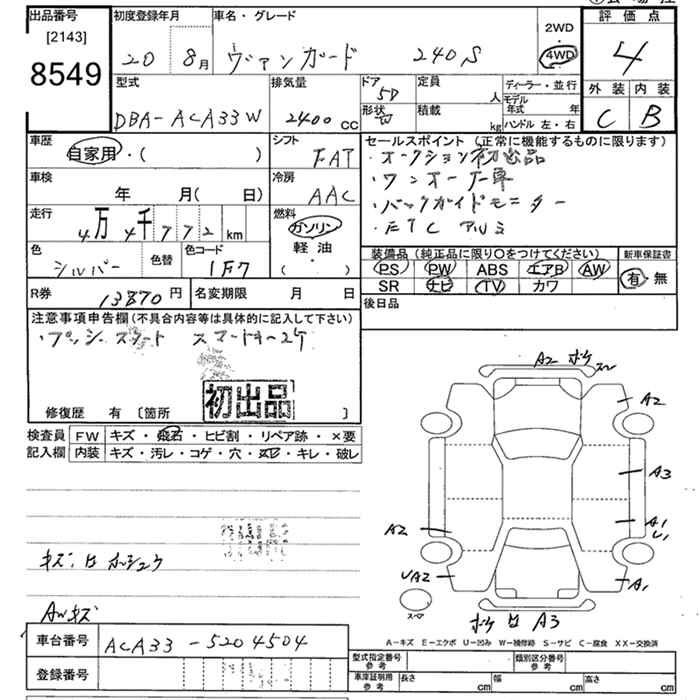 出品番号
[2143]
8549
初度登録年月
20 8月
車名・グレード
ヴァンガード 240S
2WD
・
4WD
評価点
4
外装 内装
C B
型式
DBA-ACA33W
排気量
2400cc
ドア
5D
形状
定員
人
積載
kg
ディーラー・並行
モデル年式 年
ハンドル 左・右
車歴
自家用・( )
シフト
FAT
車検
年 月( 日)
冷房
AAC
走行
4万4千772km
燃料
ガソリン
軽油
( )
色
シルバー
色替
色コード
1F7
R券
13870円
名変期限 月 日
セールスポイント (正常に機能するものに限ります)
・オークション初出品
・ワンオーナー車
・バックガイドモニター
・ETC アルミ
装備品 (純正品に限り○をつけてください)
新車保証書
PS PW ABS エアB AW
SR ナビ TV カワ
有・無
後日品
注意事項申告欄(不具合内容等は具体的に記入して下さい)
・プッシュスタート スマートキー2ケ
初出品
修復歴 有 〔箇所 〕
検査員記入欄
FW キズ・飛石・ヒビ割・リペア跡・×要
内装 キズ・汚レ・コゲ・穴・凹・キレ・破レ
AWキズ
車台番号 ACA33-5204504
登録番号
A2 ボケ
A2
A3
A1
A2
UA2
A1
スペア
ボケ A3
A-キズ E-エクボ U-凹み W-補修跡 S-サビ C-腐食 XX-交換済
型式指定番号 参考
類別区分番号 参考
車庫証明用 参考
長さ cm
幅 cm
高さ cm